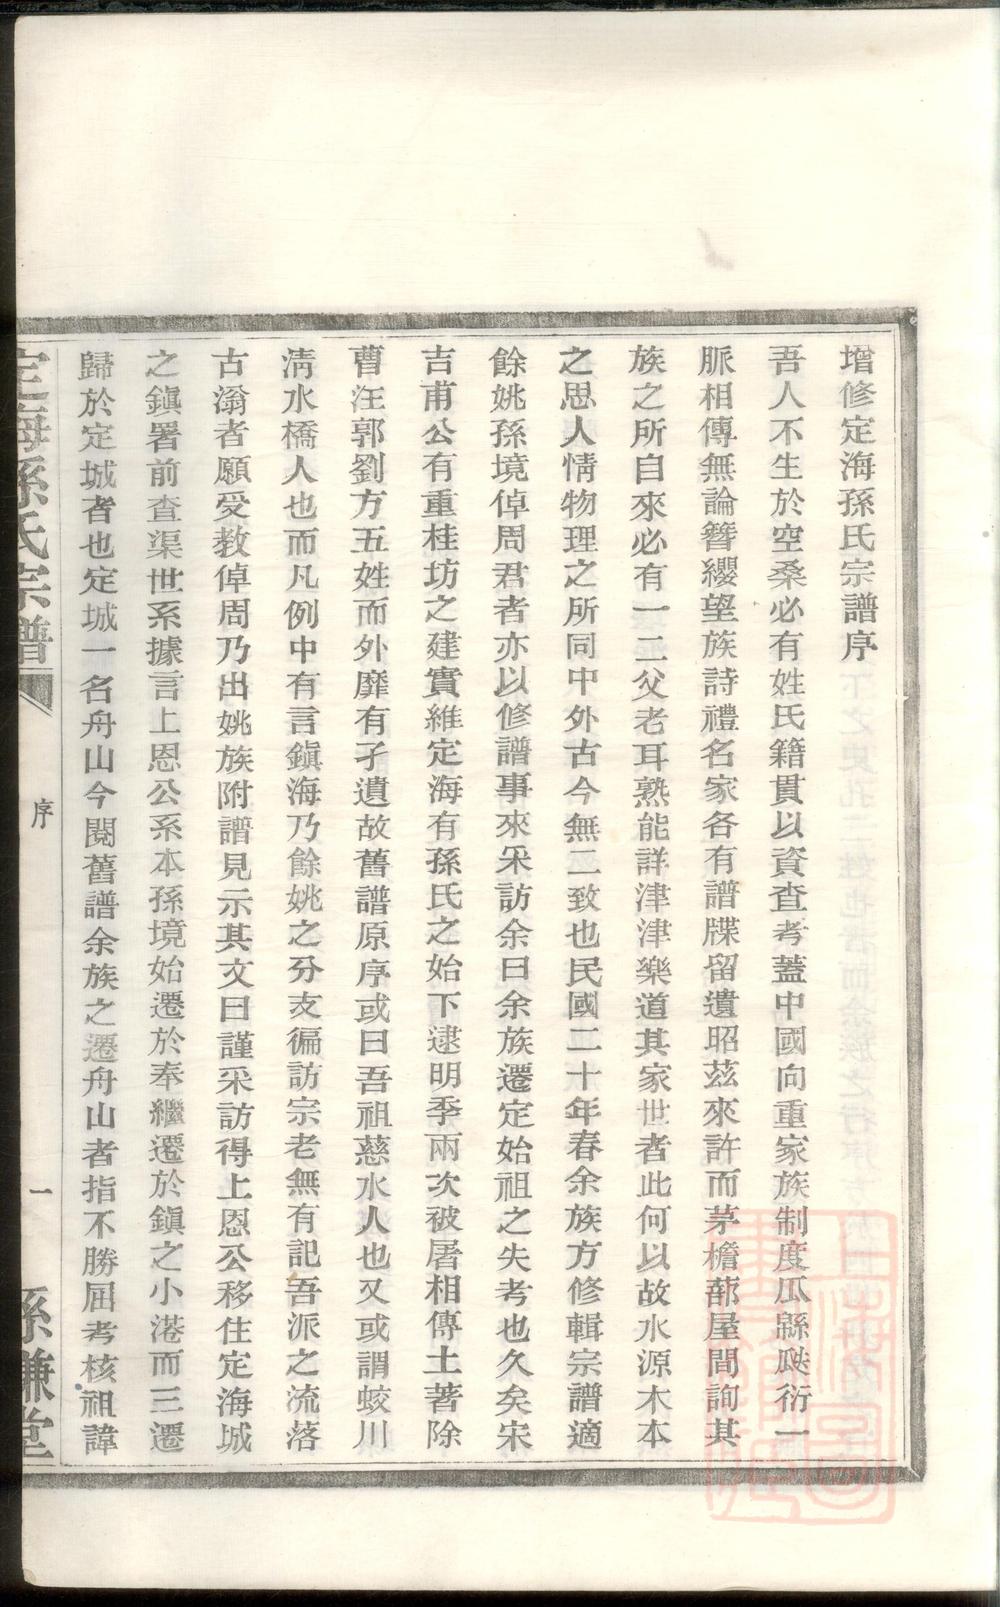 增修定海孫氏宗譜序
吾人不生於空桑必有姓氏籍貫以資查考蓋中國向重家族制度瓜緜瓞衍一
脈相傳無論簪纓望族詩禮名家各有譜牒留遺昭茲來許而茅檐蔀屋間詢其
族之所自來必有一二父老耳熟能詳津津樂道其家世者此何以故水源木本
之思人情物理之所同中外古今無二致也民國二十年春余族方修輯宗譜適
餘姚孫境倬周君者亦以修譜事來采訪余曰余族遷定始祖之失考也久矣宋
吉甫公有重桂坊之建實維定海有孫氏之始下逮明季兩次被屠相傳土著除
曹汪郭劉方五姓而外靡有孑遺故舊譜原序或曰吾祖慈水人也又或謂蛟川
淸水橋人也而凡例中有言鎭海乃餘姚之分支徧訪宗老無有記吾派之流落
古滃者願受教倬周乃出姚族附譜見示其文曰謹采訪得上恩公移住定海城
之鎭署前查渠世系據言上恩公系本孫境始遷於奉繼遷於鎭之小港而三遷
歸於定城者也定城一名舟山今閱舊譜余族之遷舟山者指不勝屈考核祖諱
定海孫氏宗譜
序
一
孫謙堂